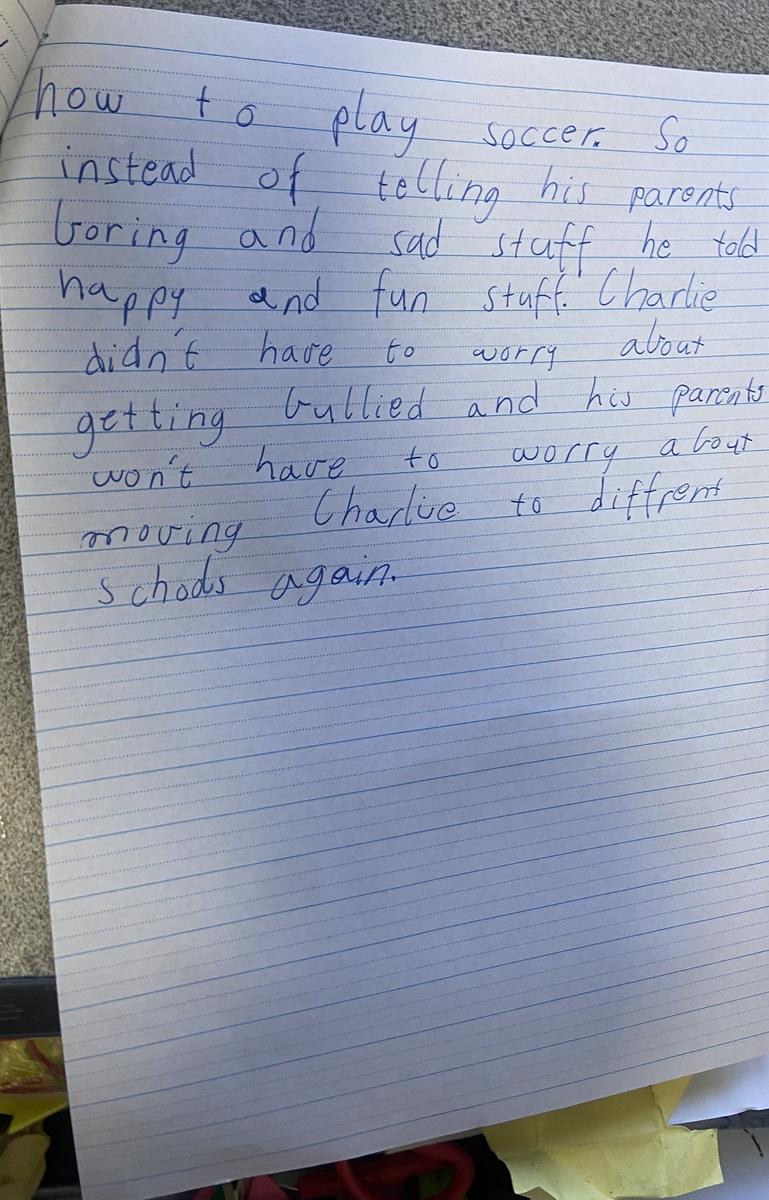 how to play soccer. So
instead of telling his parents
boring and sad stuff he told
happy and fun stuff. Charlie
didn't have to worry about
getting bullied and his parents
won't have to worry about
moving Charlie to diffrent
schools again.